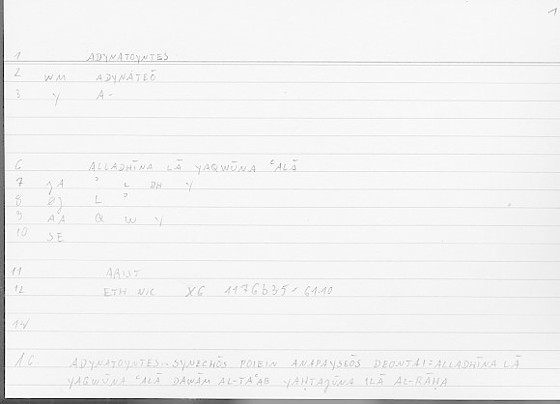 1
1 ADYNATOYNTES
2 WM ADYNATEŌ
3 Y A-
6 ALLADHĪNA LĀ YAQWŪNA ʿALĀ
7 ʾ L DH Y
8 L ʾ
9 AA Q W Y
10 SE
11 ARIST
12 ETH NIC X6 1176b35-6A10
14
16 ADYNATOYNTES - SYNECHŌS POIEIN ANAPAYSEŌS DEONTAI = ALLADHĪNA LĀ
YAQWŪNA ʿALĀ DAWĀM AL-TAʿAB YAḤTAJŪNA ILĀ AL-RĀḤA